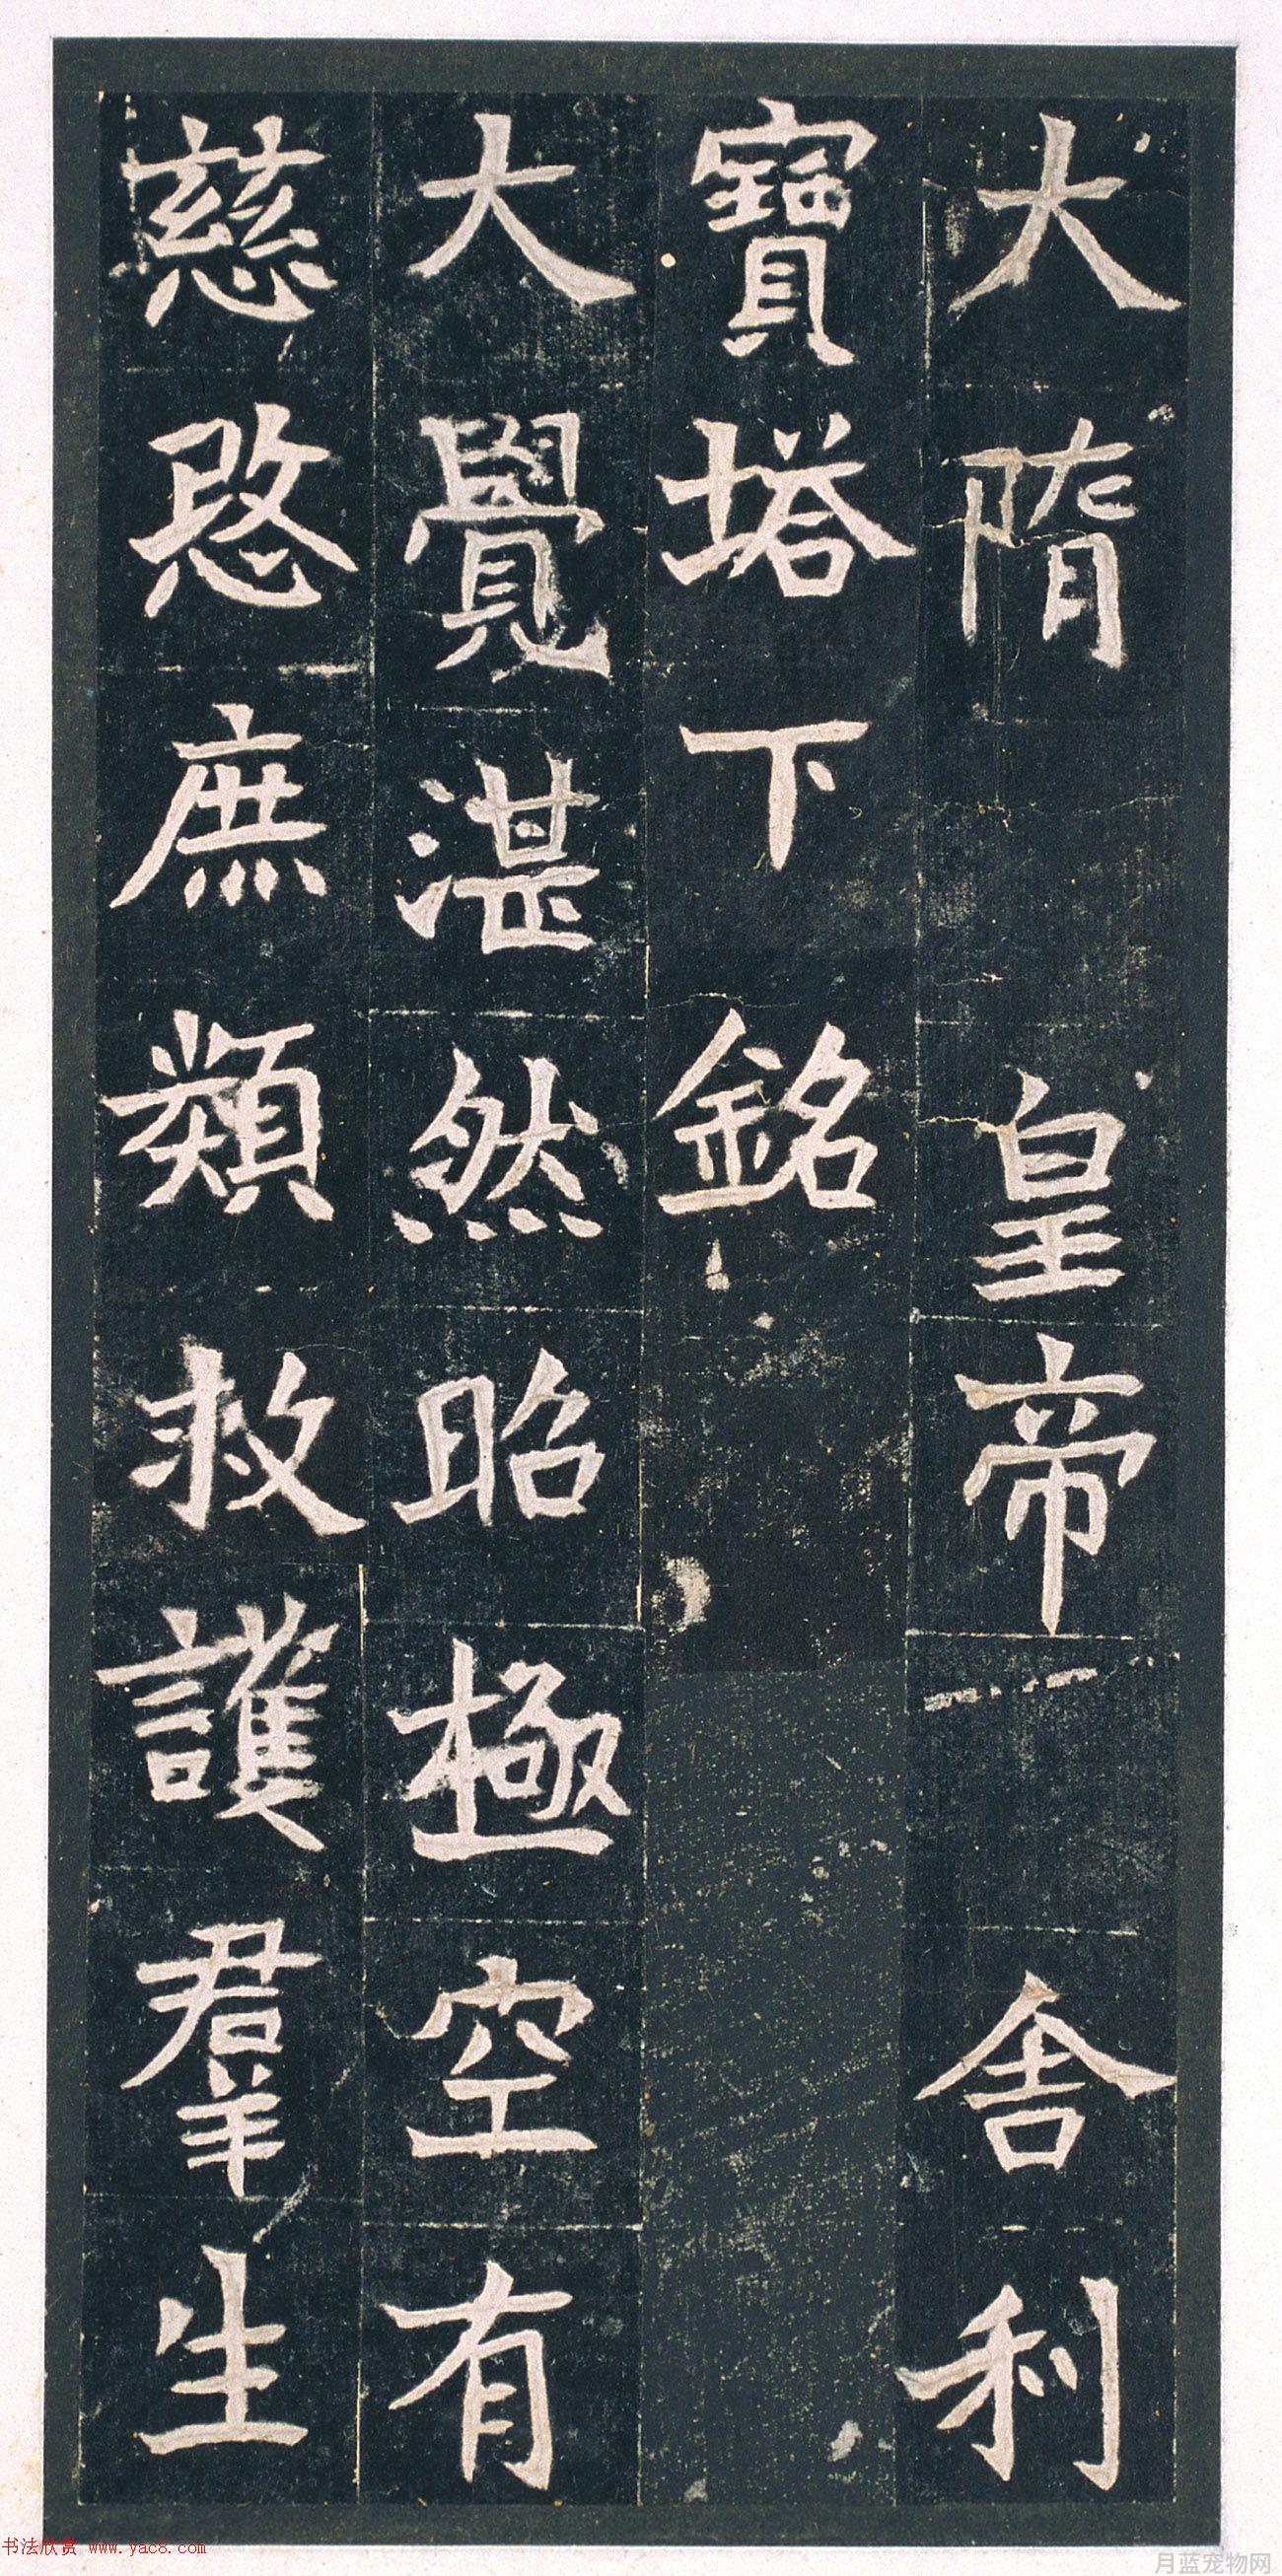 大隋皇帝舍利
寶塔下銘
大覺湛然昭極空有
慈愍庶類救護羣生
书法欣赏 www.yac8.com
月蓝宠物网